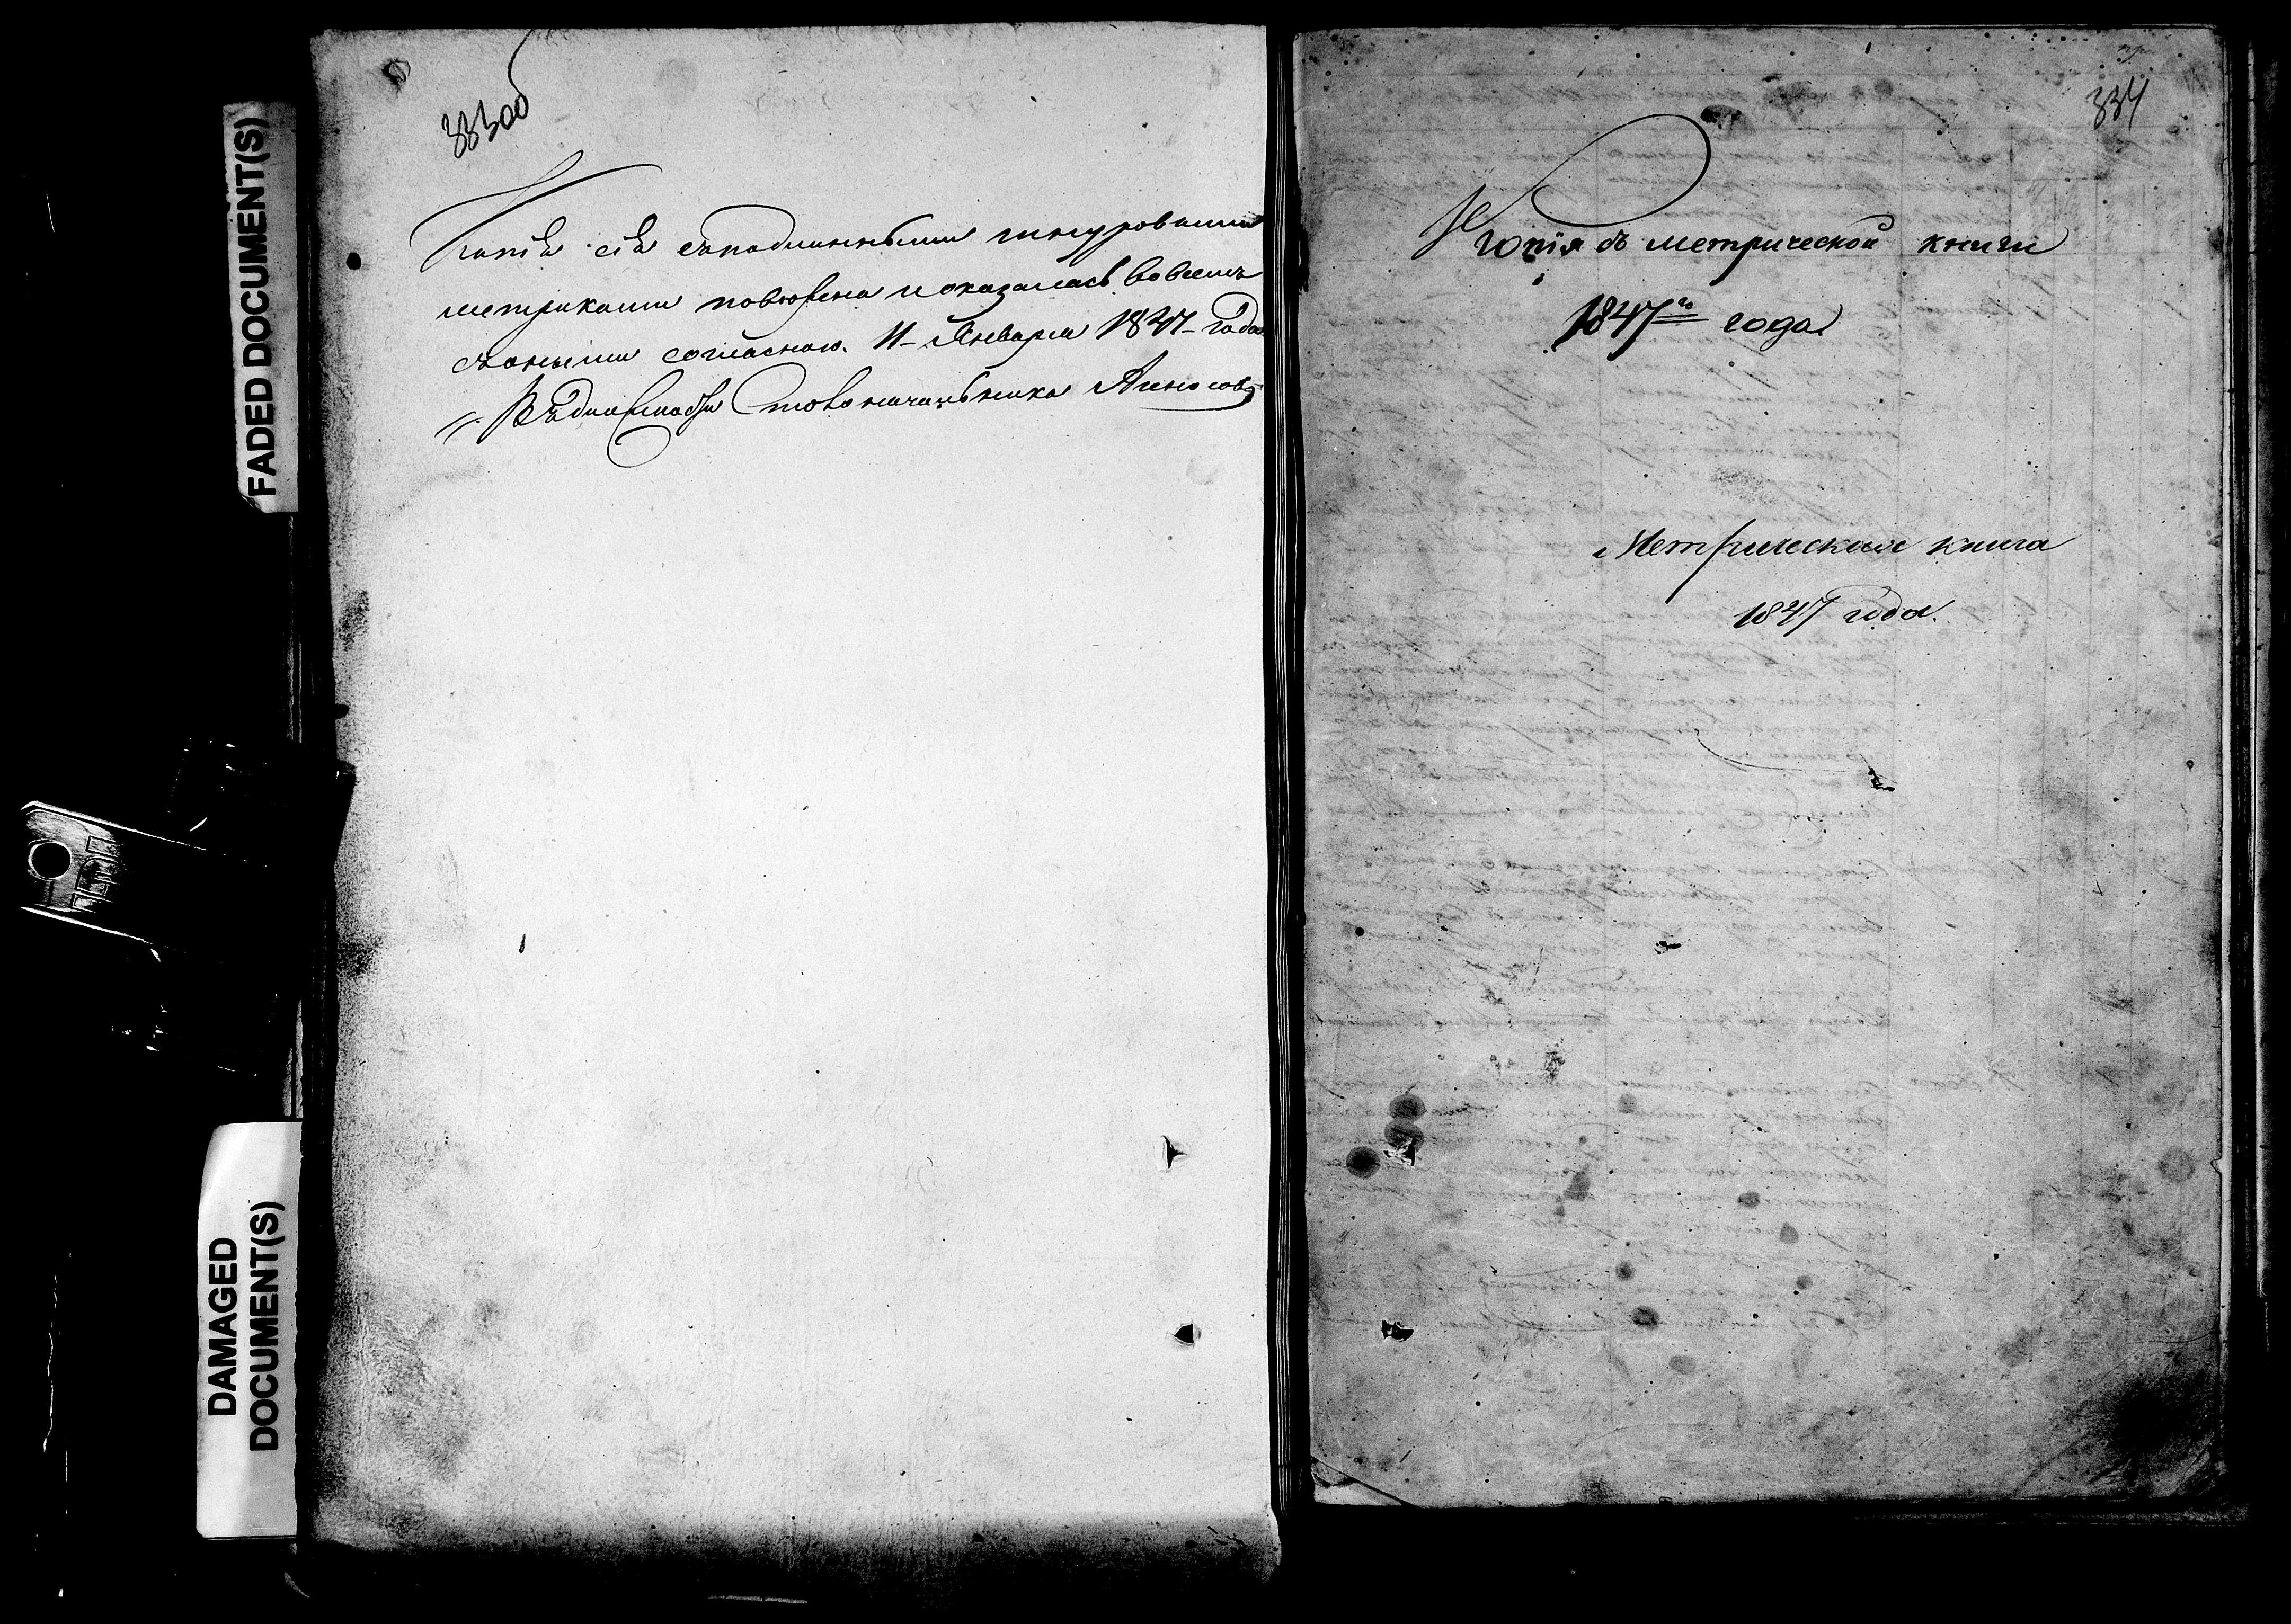 FADED DOCUMENT(S)
DAMAGED
DOCUMENT(S)
333об
Копія сія съ подлинными шнуровыми
метриками повѣрена и оказалась во всемъ
съ оными согласною. 11 Января 1847 года
Въ должности Столоначальника
334
Копія съ метрической книги
1847го года
Метрическая книга
1847 года.